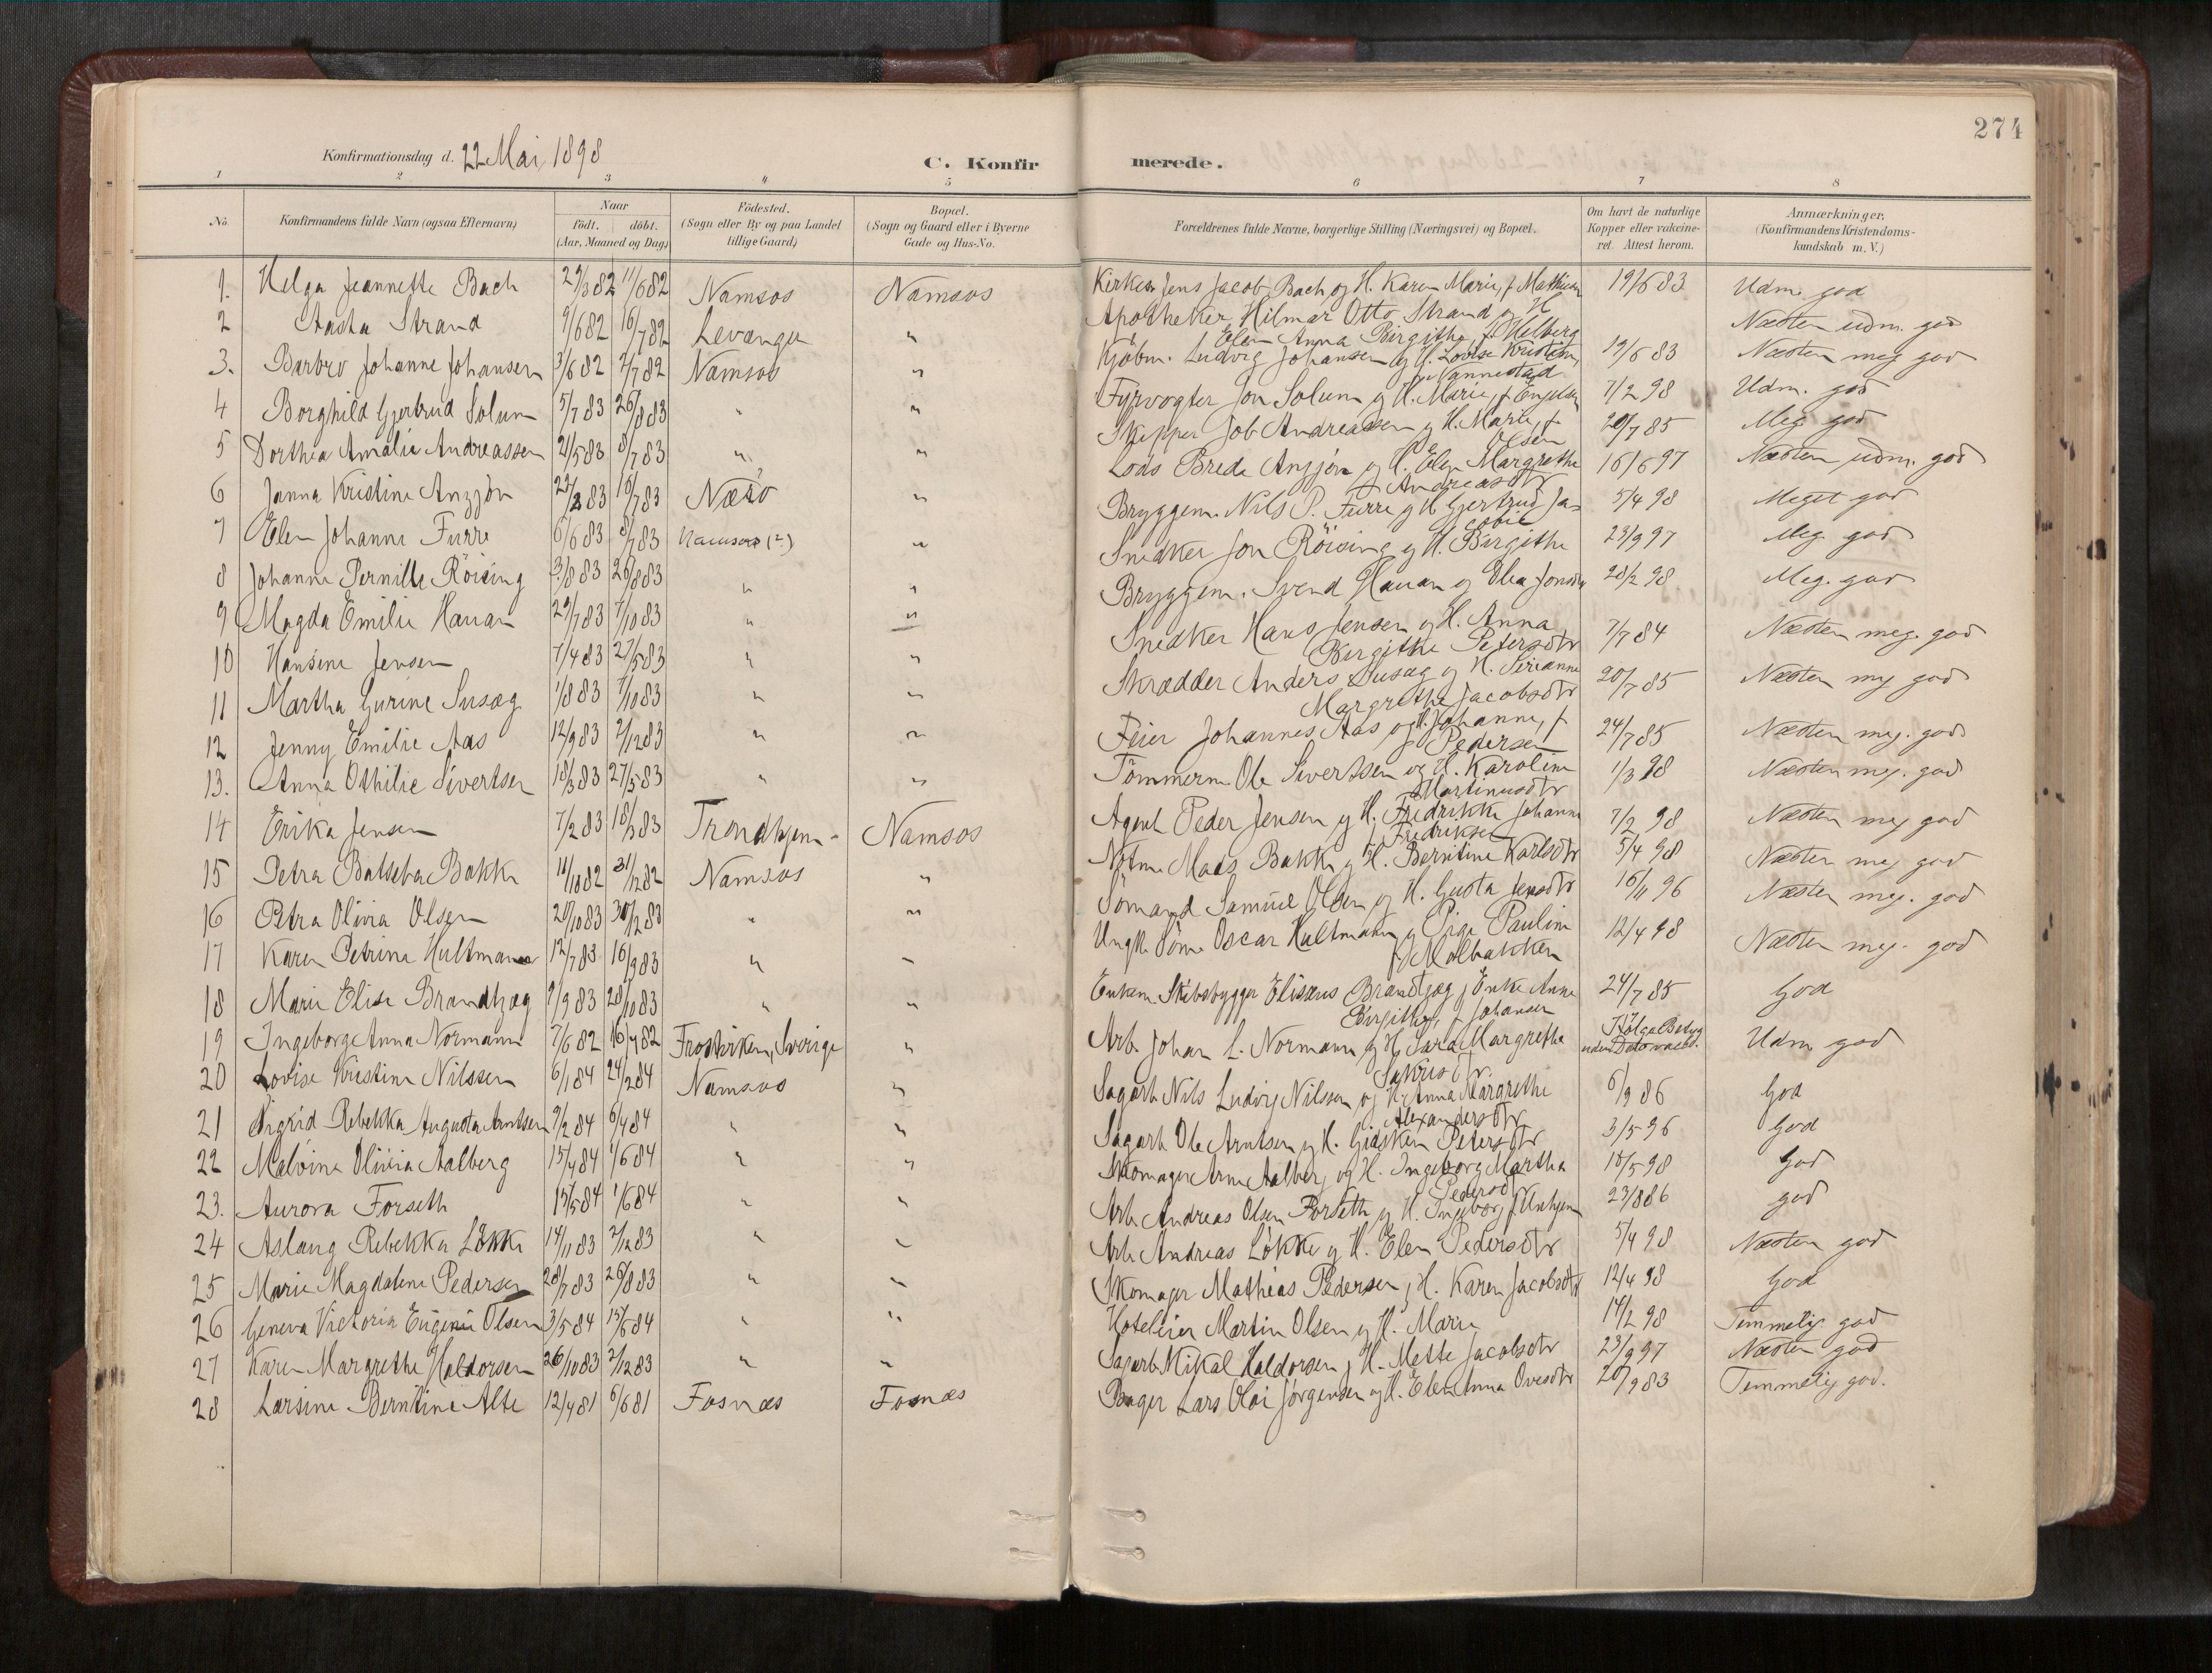 274
Konfirmationsdag d. 22 Mai 1898
C. Konfirmerede.
1 2 3 4 5 6 7 8
No Konfirmandens fulde Navn (ogsaa Efternavn) Naar födt. döbt. (Aar, Maaned og Dag) Födested. (Sogn eller By og paa Landet tillige Gaard) Bopæl. (Sogn og Gaard eller i Byerne Gade og Hus-No. Forældrenes fulde Navne, borgerlige Stilling (Næringsvei) og Bopæl. Om havt de naturlige Kopper eller vakcineret. Attest herom. Anmærkninger. (Konfirmandens Kristendomskundskab m. V.)
1. Helga Jeannette Bach 29/3 82 11/6 82 Namsos Namsos Jens Jacob Bach og H. Karen Marie, f. 19/6 83 Udm. god
2 Aasta Strand 9/6 82 16/7 82 Levanger " Apotheker Hilmar Otto Strand og H Elen Anna Birgitha f. Helberg Næsten udm. god
3. Barbro Johanne Johansen 3/6 82 2/7 82 Namsos " Kjöbm. Ludvig Johansen og H. Lovise Kristine, Nannestad 19/6 83 Næsten meg god
4 Borghild Gjertrud Solum 5/7 83 26/8 83 " " Fyrvogter Jon Solum og H. Marie, f Engelsen 7/2 98 Udm. god
5 Dorthea Amalie Andreassen 21/5 83 8/7 83 " " Skipper Job Andreassen og H. Marie, f. Olsen 20/7 85 Meg god
6 Janna Kristine Anzjön 22/2 83 15/7 83 Nærö " Lods Brede Anzjön og H. Elen Margrethe Andreasdtr 16/6 97 Næsten udm. god
7 Elen Johanne Furre 6/6 83 8/7 83 Namsos (?) " Bryggem. Nils P. Furre og H Gjertrud Jacobie 5/4 98 Meget god
8 Johanne Pernille Röising 3/8 83 26/8 83 " " Snedker Jon Röising og H. Birgithe 23/9 97 Meg. god
9 Magda Emilie Hauan 29/7 83 7/10 83 " " Bryggem. Svend Hauan og Elea Jonsdtr 28/2 98 Meg. god
10 Hansine Jensen 7/4 83 27/5 83 " " Snedker Hans Jensen og H. Anna Birgithe Petersdtr 7/7 84 Næsten meg. god
11 Martha Gurine Susæg 1/8 83 7/10 83 " " Skrædder Anders Susæg og H. Sirianne Margrethe Jacobsdtr 20/7 85 Næsten meg god
12 Jenny Emilie Aas 12/9 83 2/12 83 " " Feier Johannes Aas og H. Johanne, f. Pedersen 24/7 85 Næsten meg. god
13. Anna Othilie Sivertsen 18/3 83 27/5 83 " " Tömmerm. Ole Sivertsen og H. Karoline Martinusdtr 1/3 98 Næsten meg. god
14 Erika Jensen 7/2 83 18/3 83 Trondhjem Namsos Agent Peder Jensen og H. Fredrikke Johanne Fredriksen 7/2 98 Næsten meg god
15 Petra Batseba Bakke 11/10 82 31/12 82 Namsos " Mads Bakke og H. Berntine Karlsdtr 5/4 98 Næsten meg god
16 Petra Olivia Olsen 20/10 83 30/12 83 " " Sömand Samuel Olsen og H. Gusta Jensdtr 16/11 96 Næsten meg. god
17 Karen Petrine Hultmann 12/7 83 16/9 83 " " Ungk. Söm. Oscar Hultmann og Pige Pauline Molbakken 12/4 98 Næsten meg. god
18 Marie Elise Brandtzæg 9/9 83 28/10 83 " " Enkem. Skibsbygger Elisæus Brandtzæg, Enke Anne Birgithe, f. Johansen 24/7 85 God
19 Ingeborg Anna Normann 7/6 82 16/7 82 Frostviken, Sverige " Arb. Johan L. Normann og H. Sara Margrethe Ifölge Betyg uden Dato vacc. Udm god
20 Lovise Kristine Nilssen 6/1 84 24/2 84 Namsos " Sagarb Nils Ludvig Nilssen og H. Anna Margrethe Alexandersdtr 6/9 86 God
21 Sigrid Rebekka Augusta Arntsen 9/2 84 6/4 84 " " Sagarb. Ole Arntsen og H. Gidsken Petersdtr 3/5 96 God
22 Malvina Olivia Aalberg 15/4 84 1/6 84 " " Skomager Arne Aalberg og H. Ingeborg Martha Pedersdtr 18/5 98 God
23. Aurora Forseth 15/5 84 1/6 84 " " Arb Andreas Olsen Forseth og H. Ingeborg f. 23/8 86 god
24 Aslaug Rebekka Løkke 14/11 83 2/12 83 " " Arb Andreas Løkke og H. Elen Pedersdtr 5/4 98 Næsten god
25 Marie Magdalene Pedersen 28/7 83 26/8 83 " " Skomager Mathias Pedersen, H. Karen Jacobsdtr 12/4 98 God
26 Geneva Victoria Eugenie Olsen 3/5 84 15/6 84 " " Hoteleier Martin Olsen og H. Marie 14/2 98 Temmelig god
27 Karen Margrethe Haldorsen 26/10 83 2/12 83 " " Sagarb. Mikal Haldorsen, H. Mette Jacobsdtr 23/9 97 Næsten god
28 Larsine Berntine Alte 12/4 81 6/6 81 Fosnæs Fosnæs Bager Lars Olai Jørgensen og H. Elen Anna Ovesdtr 20/9 83 Temmelig god.